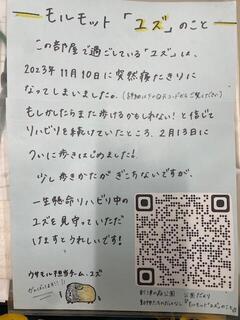 モルモット「ユズ」のこと
この部屋で過ごしている「ユズ」は、
2023年11月10日に突然寝たきりに
なってしまいました。(詳細は下のQRコードからご覧ください)
もしかしたらまた歩けるかもしれない！と信じて
リハビリを続けていたところ、2月13日に
ついに歩きはじめました！
少し歩きかたがぎこちないですが、
一生懸命リハビリ中の
ユズを見守っていただ
けますとうれしいです！
ウサモル担当チーム・ユズ
がんばってます！！